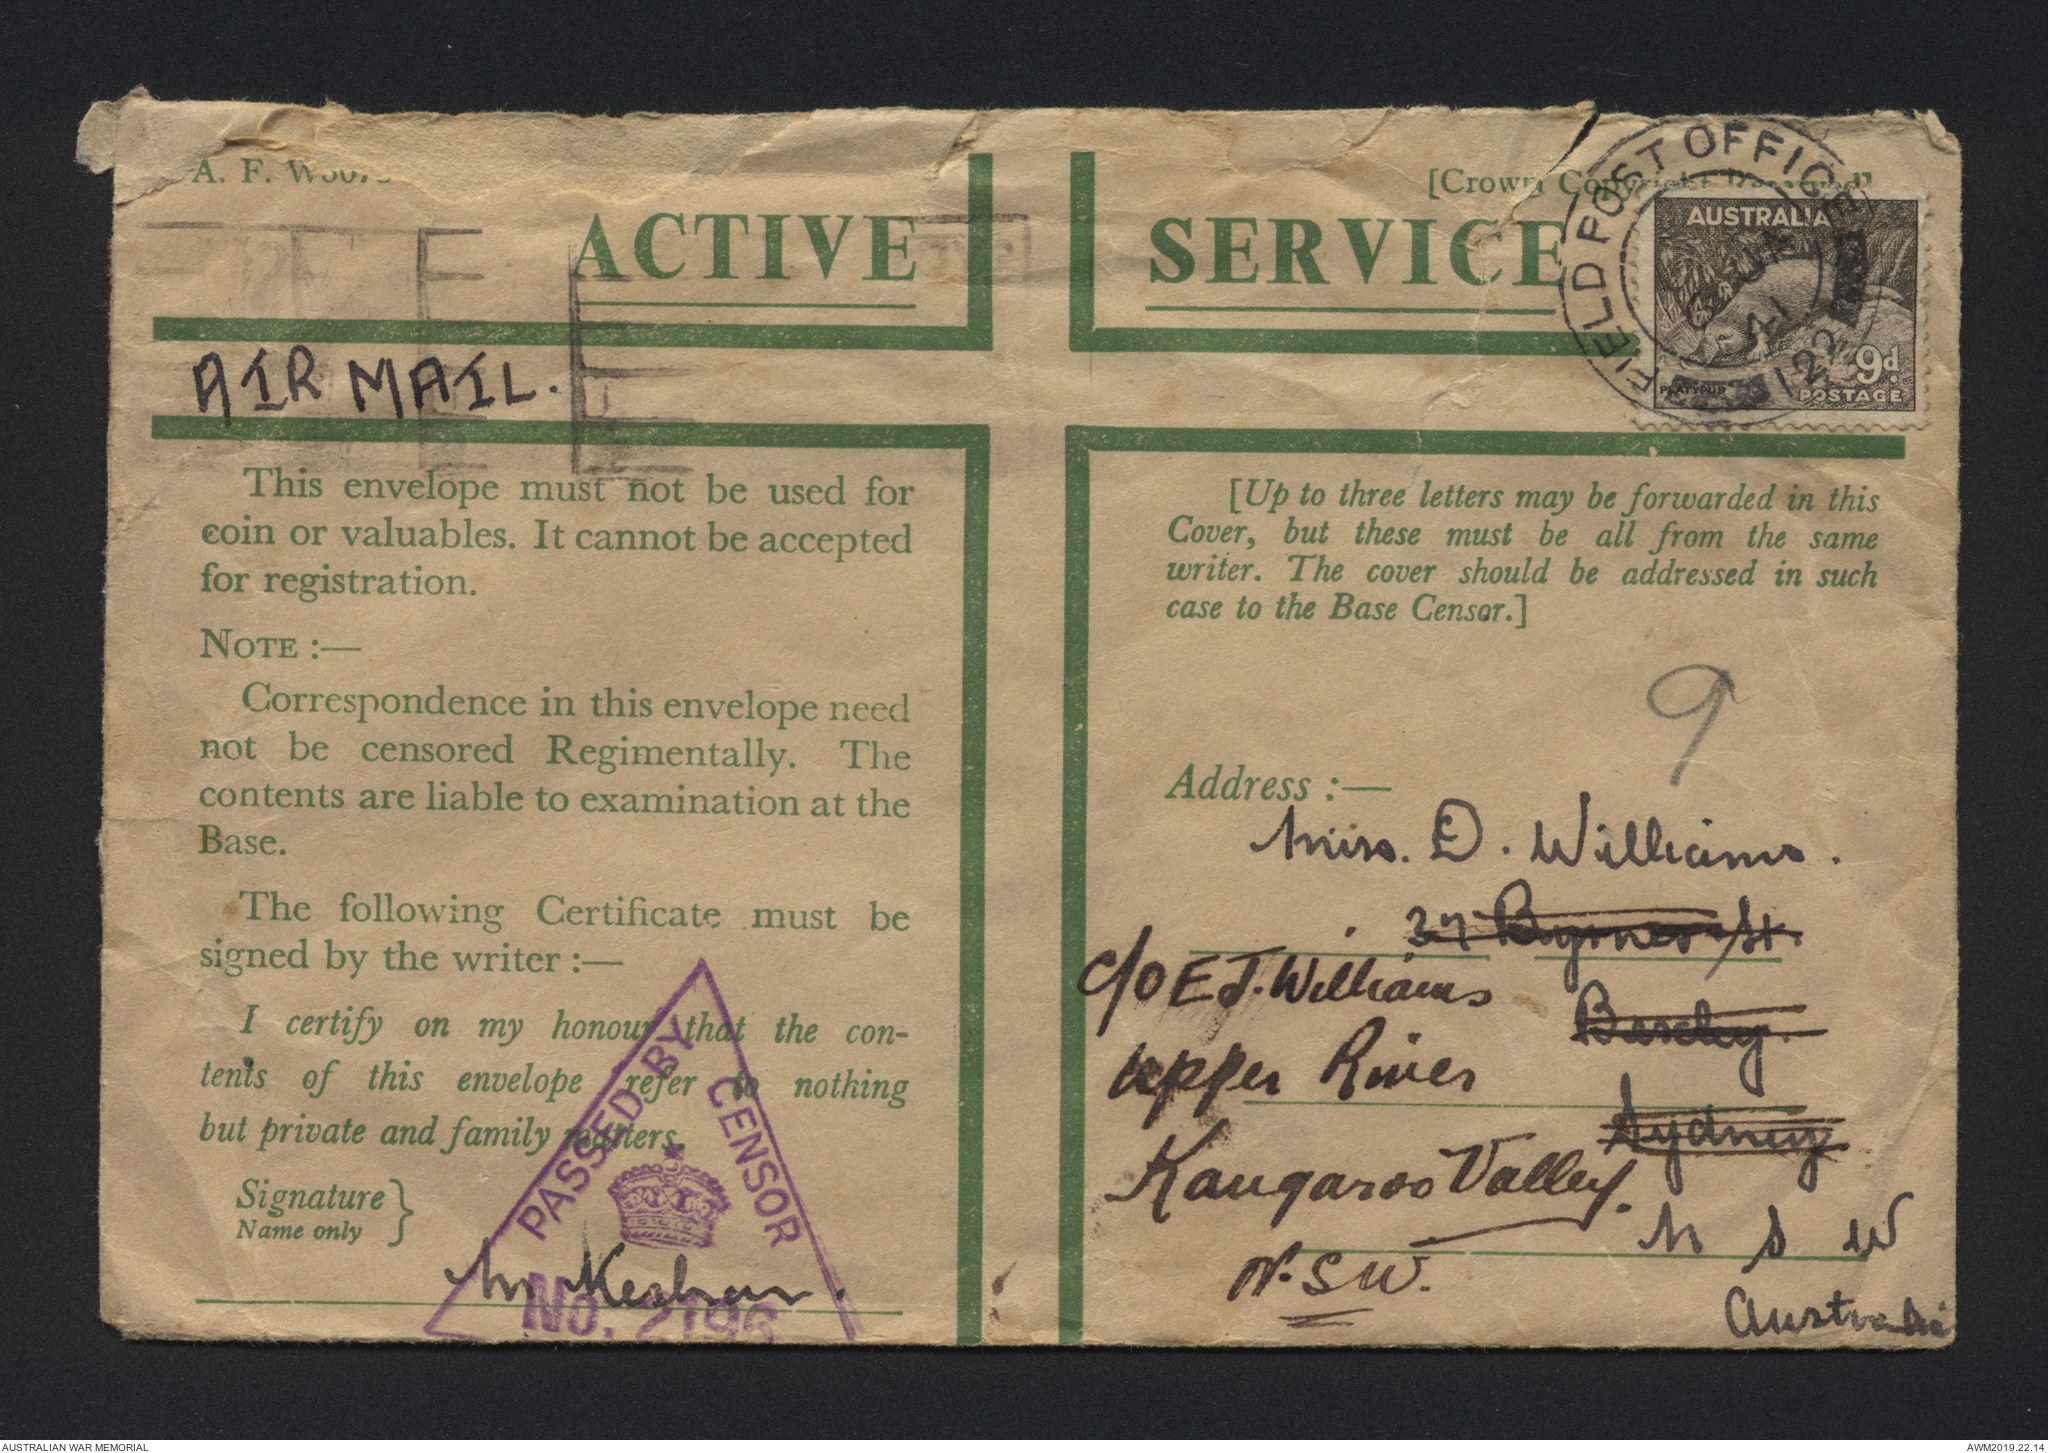 A. F. W3078
[Crown Copyright Reserved]
ACTIVE SERVICE
FIELD POST OFFICE
41
122
AUSTRALIA
PLATYPUS
9d.
POSTAGE
AIR MAIL.
This envelope must not be used for
coin or valuables. It cannot be accepted
for registration.
NOTE :—
Correspondence in this envelope need
not be censored Regimentally. The
contents are liable to examination at the
Base.
The following Certificate must be
signed by the writer :—
I certify on my honour that the con-
tents of this envelope refer to nothing
but private and family matters.
Signature
Name only
PASSED BY CENSOR
No.
[Up to three letters may be forwarded in this
Cover, but these must be all from the same
writer. The cover should be addressed in such
case to the Base Censor.]
9
Address :—
Miss. D. Williams.
37 Byrnes St.
Bexley.
Sydney
N S W
Australia
c/o E J. Williams
Upper River
Kangaroo Valley.
N. S W.
AUSTRALIAN WAR MEMORIAL
AWM2019.22.14